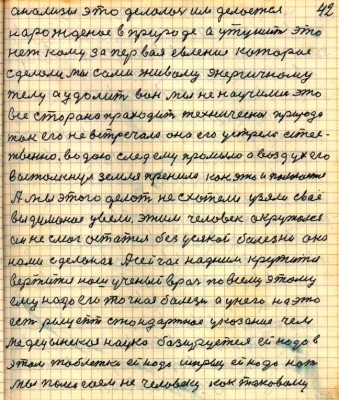 анализы это делалось им делается 42
нарожденое в природе а утушить это
нет кому за первая евление которае
сделали мы сами живому энергичному
телу а удолить вон мы не научились это
все сторана праходит техническая природа
так его не встречала она его устрела естес-
твенно, водою след ему промыло а воздух его
вытолкнул земля преняла как это и
А мы этого делать не схотели узяли своё
выдуманае увели, этим человек окружился
он не смог остатся без усякой балезни она
нами сделаная А сейчас над ним крутится
вертится наш ученый врач по всему этому
ему надо его точная балезнь а у него на это
есть рецепт стандартное указание чем
медецынская наука базируется ей надо в
этом таблетка ей надо шприц ей надо нож
мы помогаем не человеку как таковому